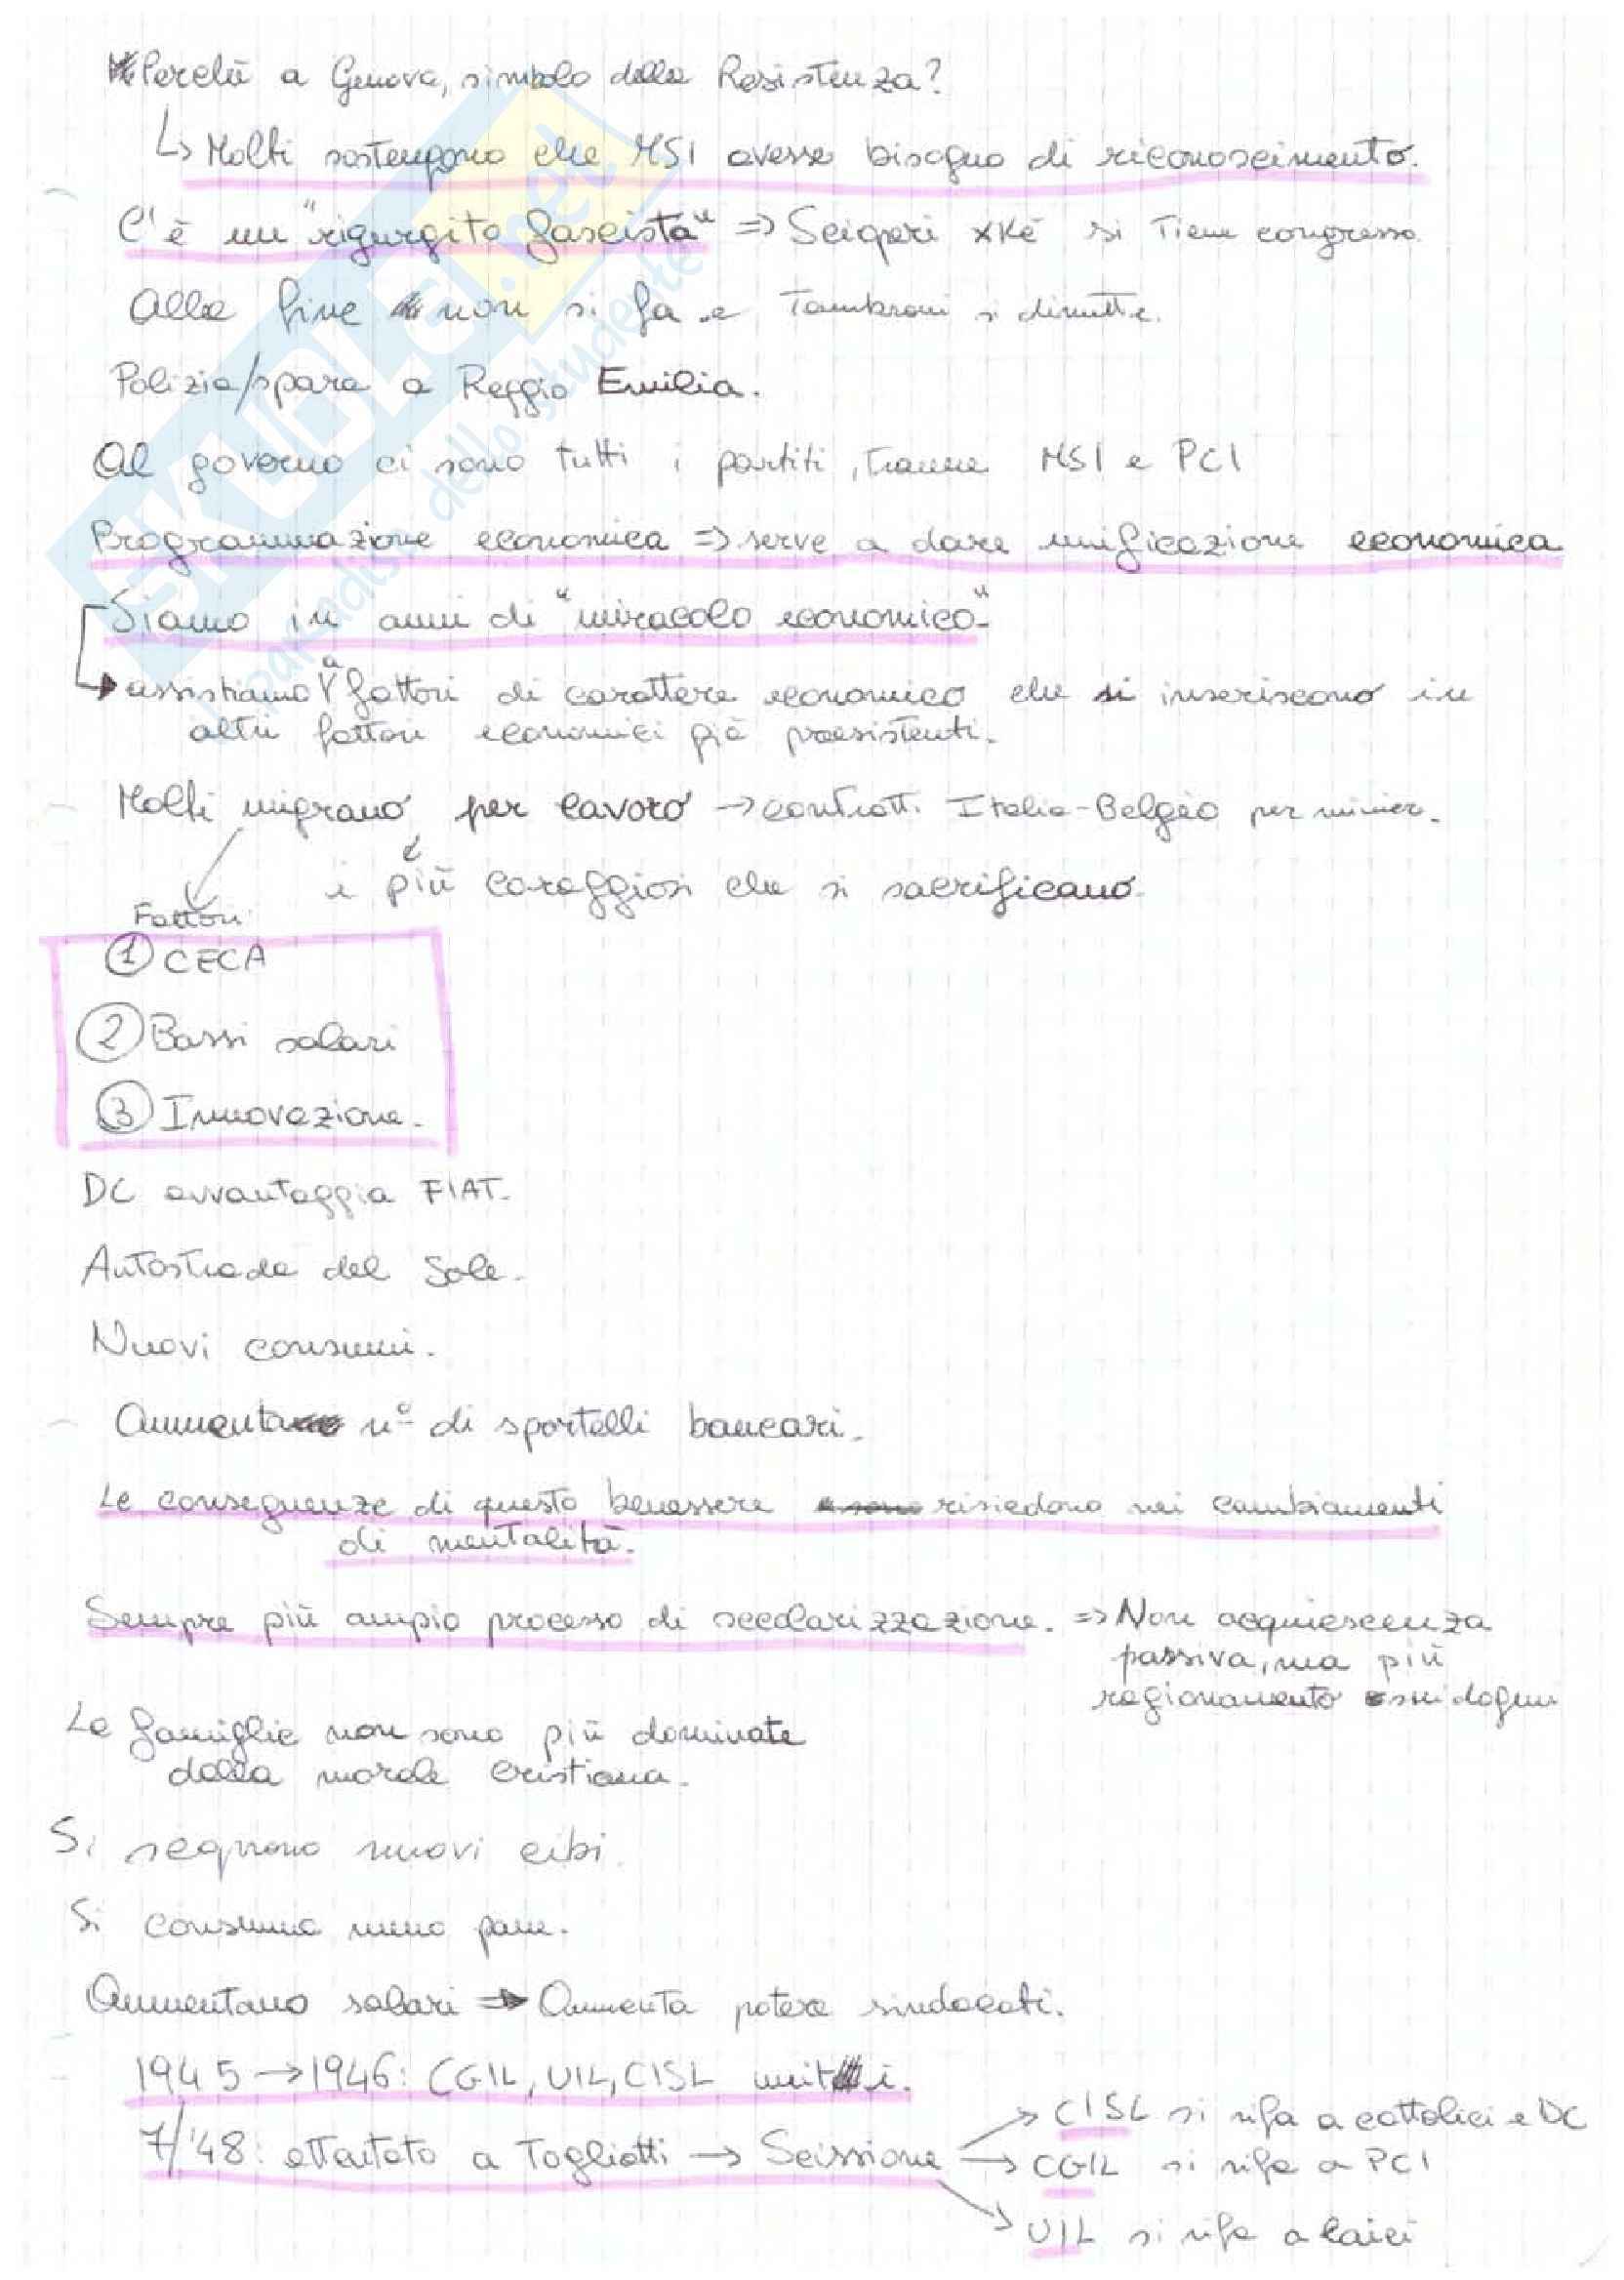 Perchè a Genova, simbolo della Resistenza?
↳ Molti sostengono che MSI avesse bisogno di riconoscimento.
C'è un "rigurgito fascista" => Scioperi xKé si tiene congresso.
Alla fine non si fa e Tambroni si dimette.
Polizia spara a Reggio Emilia.
Al governo ci sono tutti i partiti, tranne MSI e PCI
Programmazione economica => serve a dare unificazione economica
Siamo in anni di "miracolo economico"
→ assistiamo a fattori di carattere economico che si inseriscono in
altri fattori economici già preesistenti.
Molti migrano per lavoro → contratti Italia-Belgio per minier.
i più coraggiosi che si sacrificano.
Fattori:
① CECA
② Bassi salari
③ Innovazione.
DC avvantaggia FIAT.
Autostrada del Sole.
Nuovi consumi.
Aumenta n° di sportelli bancari.
Le conseguenze di questo benessere risiedono nei cambiamenti
di mentalità.
Sempre più ampio processo di secolarizzazione. => Non acquiescenza
passiva, ma più
ragionamento sui dogmi
Le famiglie non sono più dominate
dalla morale cristiana.
Si seguono nuovi cibi.
Si consuma meno pane.
Aumentano salari => Aumenta potere sindacati.
1945 → 1946: CGIL, UIL, CISL uniti.
7/'48: attentato a Togliatti → Scissione
→ CISL si rifa a cattolici e DC
→ CGIL si rifa a PCI
→ UIL si rifa a laici
SKUOLA.net
il paradiso dello studente